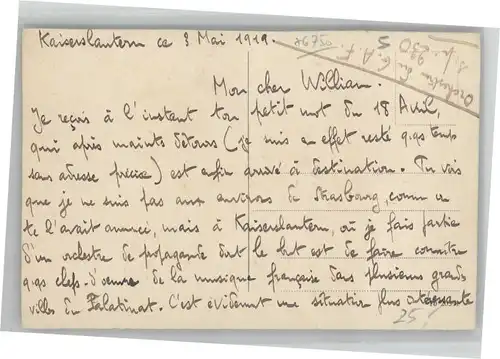 Kaiserslautern ce 3 Mai 1919.
Mon cher William.
Je reçois à l'instant ton petit mot du 18 Avril,
qui après maints détours (je suis en effet resté q.qs temps
sans adresse précise) est enfin arrivé à destination. Tu vois
que je ne suis pas aux environs de Strasbourg, comme on
te l'avait annoncé, mais à Kaiserslautern, où je fais partie
d'un orchestre de propagande dont le but est de faire connaître
q.qs chefs-d'oeuvre de la musique française dans plusieurs grandes
villes du Palatinat. C'est évidemment une situation plus intéressante
Orchestre du G.A.F.
S.P. 230
x6750
25